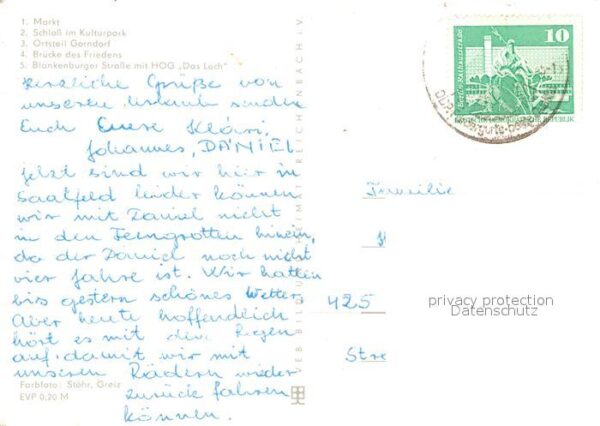 1. Markt
2. Schloß im Kulturpark
3. Ortsteil Gorndorf
4. Brücke des Friedens
5. Blankenburger Straße mit HOG „Das Loch"
Herzliche Grüße von
unseren Urlaub senden
Euch Eure Klári,
Johannes, DANIEL
jetzt sind wir hier in
Saalfeld leider können
wir mit Daniel nicht
in den Feengrotten hinein,
da der Daniel noch nicht
vier Jahre ist. Wir hatten
bis gestern schönes Wetter,
Aber heute hoffendlich
hört es mit dem Regen
auf. damit wir mit
unseren Rädern wieder
zurück fahren
können.
Farbfoto: Stöhr, Greiz
EVP 0,20 M
VEB BILD UND HEIMAT REICHENBACH I. V.
10
Berlin-Rathausstraße
Familie
425
Stre
privacy protection
Datenschutz